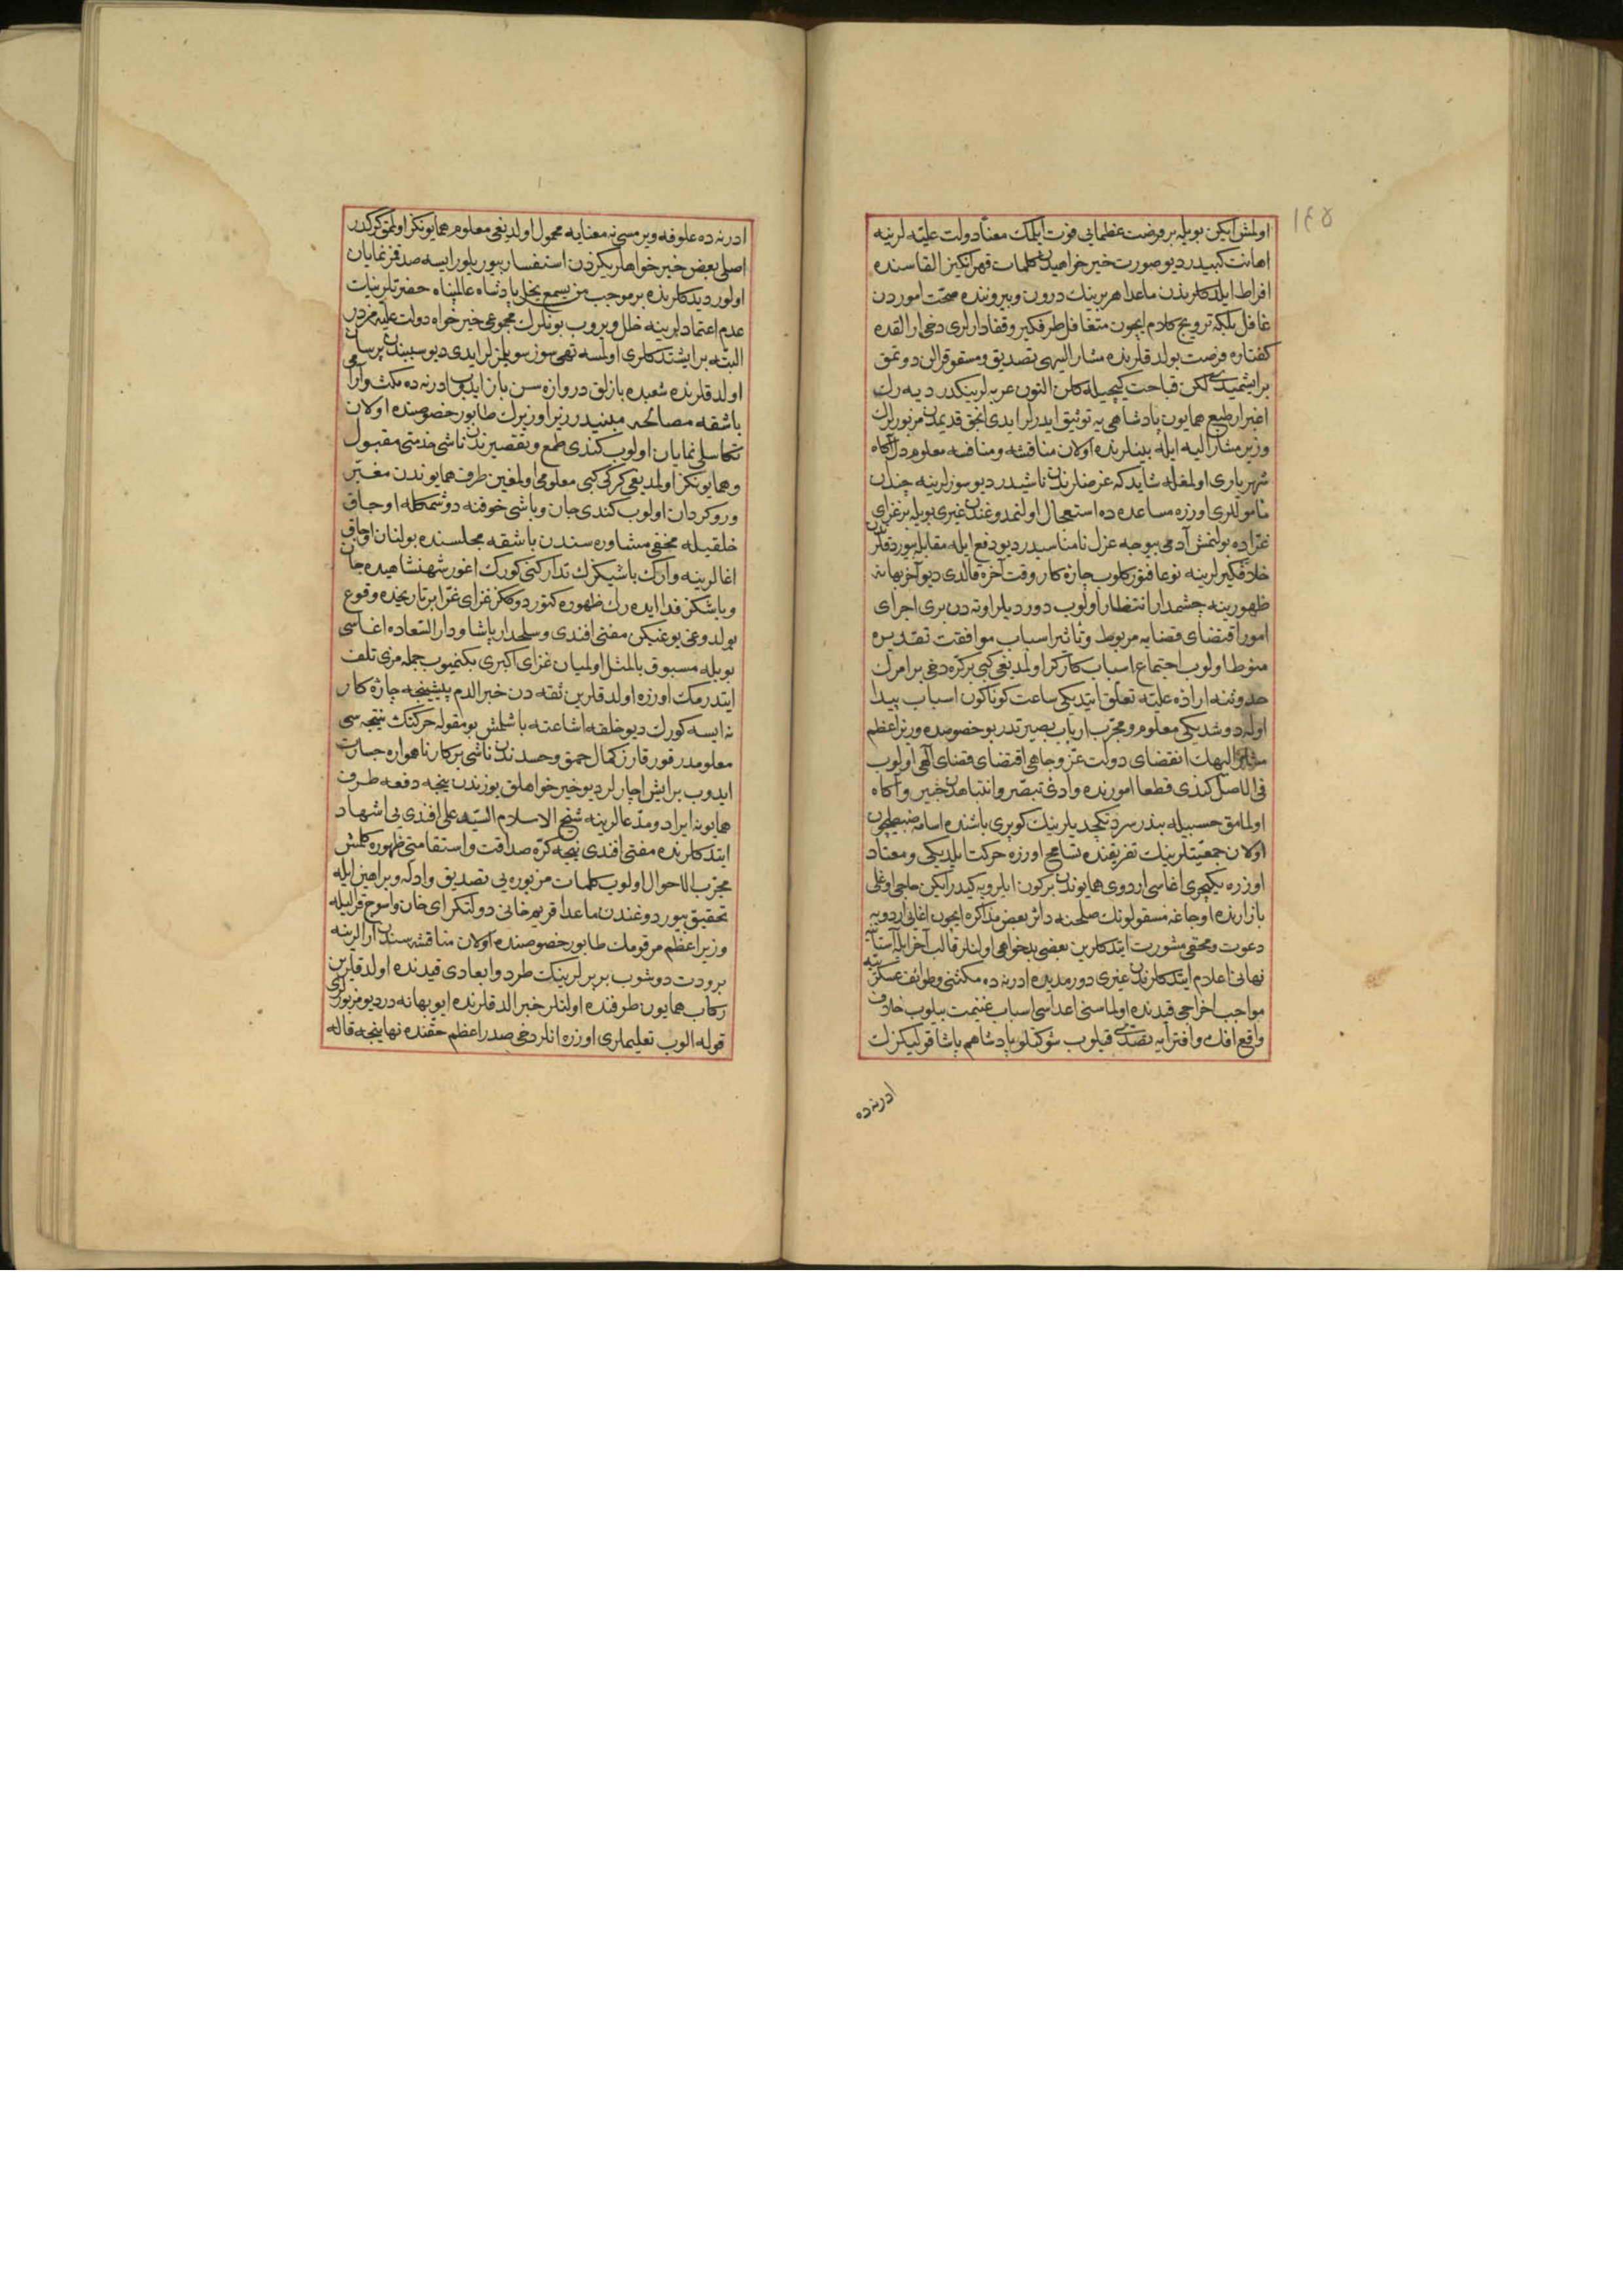 ١٤٥
اولمش ايكن بويله بر فرصت عظمايى فوت ايلمك معنا دولت عليه لرينه
اهانت كبيدر ديو صورت خير خواهيدن كلمات قهر انكيز القاسنده
افراط ايلدكلرندن ماعدا هر برينك درون و بيروننده صحت اموردن
غافل بلكه ترويج كلام ايچون متغافل طرفكير و قفادارلرى دخى ارالقده
كفتاره فرصت بولدقلرنده مشار اليهى تصديق و مسقو قرالن دوتمق
بر ايشميدى لكن قباحت كيجيله كلن التون عربه لرينكدر ديه رك
اغبرار طبع همايون پادشاهى يه توثيق ايدرلر ايدى انجق قديمدن مزبورلرك
وزير مشار اليه ايله بينلرنده اولان مناقشه و منافسه معلوم دل آگاه
شهريارى اولمغله شايد كه غرضلرندن ناشيدر ديو سوزلرينه چندان
مأموللرى اوزره مساعده ده استعجال اولنمدوغندن غيرى بويله بر غزاى
غراده بولنمش آدمى بيوجه عزل نامناسبدر ديو دفع ايله مقابله بيوردقلرى
خلافگيرلرينه نوعا فتور كلوب چاره كار وقت آخره قالدى ديو آخر بهانه
ظهورينه چشمدار انتظار اولوب دورديلر اوته دن برى اجراى
امور اقتضاى قضايه مربوط و تأثير اسباب موافقت تقديره
منوط اولوب اجتماع اسباب كاركر اولمديغى كبى بر كره دخى بر امرك
حدوثنه اراده عليه تعلق ايتديكى ساعت كوناكون اسباب پيدا
اوله دوشديكى معلوم و مجرب ارباب بصيرتدر بو خصوصده وزير اعظم
مشار اليهك انقضاى دولت عز و جاهى اقتضاى قضاى الهى اولوب
فى الاصل كندى قطعا امورنده وادئ تبصر و انتباهدن خبير و آكاه
اولمامق حسبيله بندر سردنكچديلرينك كوپرى باشنده اسامه ضبطيچون
اولان جمعيتلرينك تفريقنده تسامح اوزره حركت ايلديكى و معتاد
اوزره يكيچرى اغاسى اردوى همايوندن بر كون ايلرويه كيدر ايكن حاجى اوغلى
بازارنده اوجاغه مسقولونك صلحنه دائر بعض مذاكره ايچون اغايى اردويه
دعوت و مخفى مشورت ايتدكلرين بعضى بدخواهى اولنلر قالب آخر ايله آستانه يه
نهانى اعلام ايتدكلرندن غيرى دور مديده ادرنه ده مكثنى و طوائف عسكر
مواجب اخراجى قيدنده اولماسنى اعداسى اسباب غنيمت بيلوب خلاف
واقع افك و افترايه تصدى قيلوب شوكتلو پادشاهم پاشا قوليكزك
ادرنه ده
ادرنه ده علوفه ويرمسى نه معنايه محمول اولديغى معلوم همايونكز اولمق كركدر
اصلى بعض خير خواهلريكزدن استفسار بيوريلور ايسه صدقمز نمايان
اولور ديدكلرنده بر موجب من يسمع يخل پادشاه عالمپناه حضرتلرينك
عدم اعتمادلرينه خلل ويروب بونلرك مجموعى خير خواه دولت عليه مزدر
البته بر ايشتدكلرى اولمسه تهى سوز سويلمزلر ايدى ديو سببندن پرسان
اولدقلرنده شعبده بازلق دروازه سن باز ايدوب ادرنه ده مكث و آرامى
باشقه مصالحه مبنيدر زيرا وزيرك طابور خصوصنده اولان
تكاسلى نمايان اولوب كندى طمع و تقصيرندن ناشى خدمتى مقبول
و همايونكز اولمديغى كركى كبى معلومى اولمغين طرف همايوندن مغبر
و روكردان اولوب كندى جان و باشى خوفنه دوشمكله اوجاق
خلقيله مخفى مشاوره سندن باشقه مجلسنده بولنان اوجاق
اغالرينه وارك باشيكزك تداركنى كورك اغور شهنشاهيده جان
و باشكز فدا ايده رك ظهوره كتوردوككز غزاى غرا بر تاريخده وقوع
بولدوغى يوغيكن مفتى افندى و سلحدار پاشا و دار السعاده اغاسى
بويله مسبوق بالمثل اولميان غزاى اكبرى بكنميوب جمله مزى تلف
ايتدرمك اوزره اولدقلرين ثقه دن خبر الدم پيشينجه چاره كار
نه ايسه كورك ديو خلقه اشاعته باشلمش بو مقوله حركتك نتيجه سى
معلومدر قورقارز كمال حمق و حسدندن ناشى بر كار ناهمواره جسارت
ايدوب بر ايش اچارلر ديو خير خواهلق يوزندن نيجه دفعه طرف
همايونه ايراد و مدعالرينه شيخ الاسلام السيد على افندى يى اشهاد
ايتدكلرنده مفتى افندى نيجه كره صداقت و استقامتى ظهوره كلمش
مجرب الاحوال اولوب كلمات مزبوره يى تصديق و ادله و براهين ايله
تحقيق بيوردوغندن ماعدا قريم خانى دولتكراى خان و اسوج قراليله
وزير اعظم مرقومك طابور خصوصنده اولان مناقشه سندن ارالرينه
برودت دوشوب بربرلرينك طرد و ابعادى قيدنده اولدقلرين
ركاب همايون طرفنده اولنلر خبر الدقلرنده ايو بهانه در ديو مزبورلرى
قوله الوب تعليملرى اوزره انلر دخى صدر اعظم حقنده نهاينجه قاله